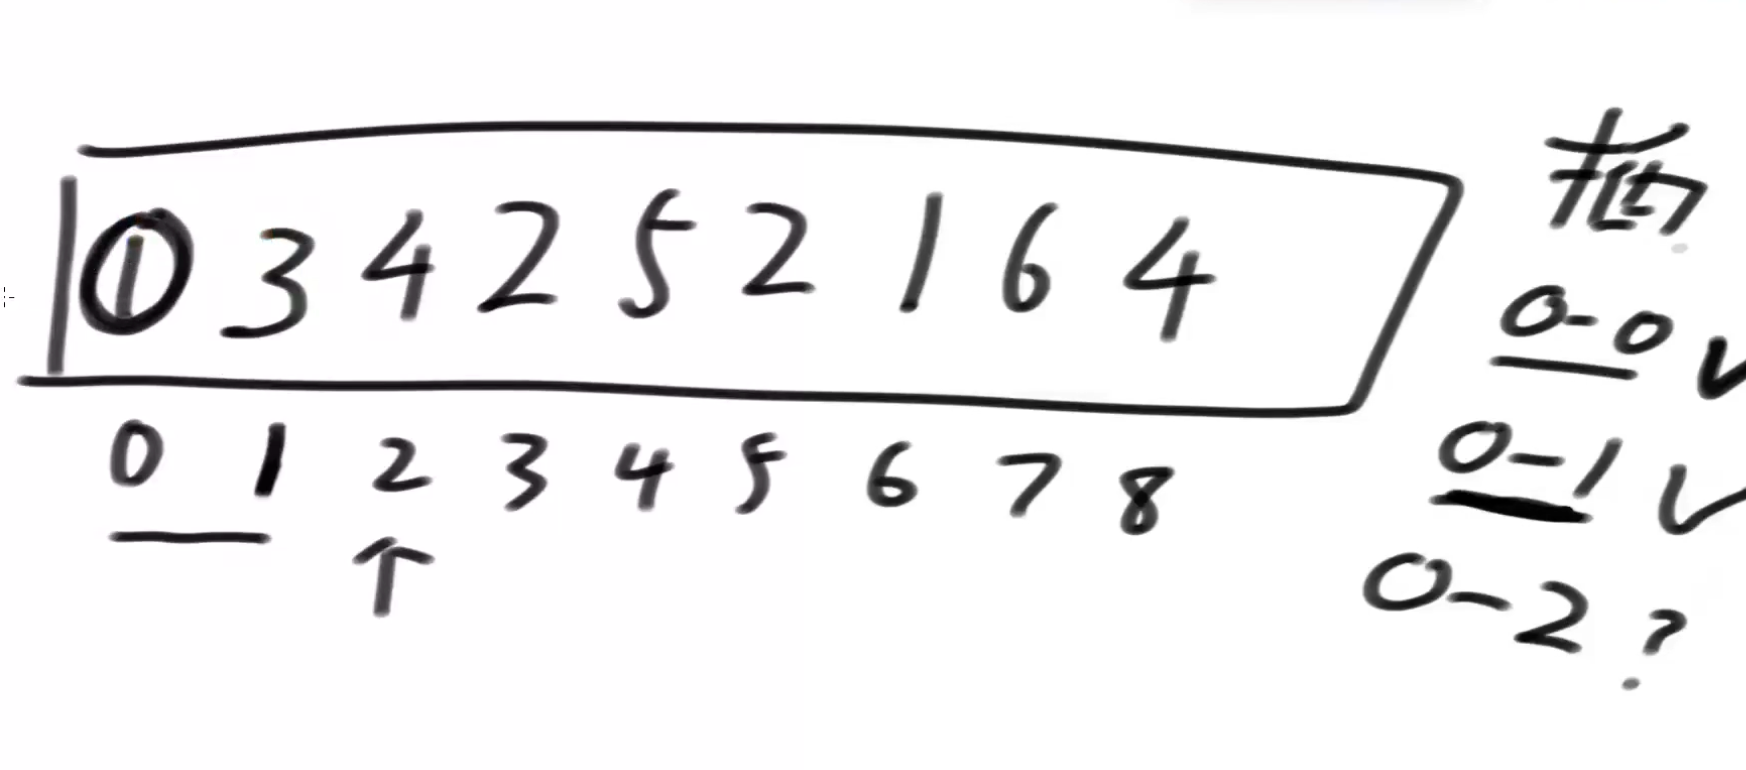 1 3 4 2 5 2 1 6 4
0 1 2 3 4 5 6 7 8
0-0
0-1
0-2 ?